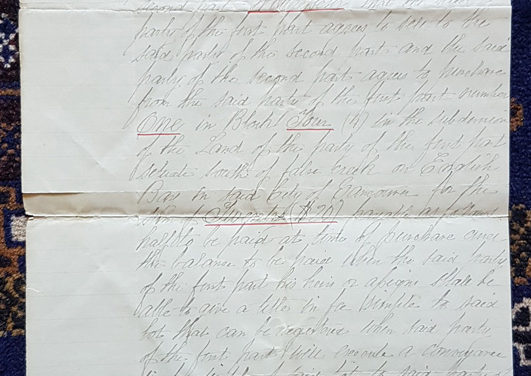 second part
party of the first part agrees to sell to the
said party of the second part and the said
party of the second part agrees to purchase
from the said party of the first part number
One in Block Four (4) in the subdivision
of the Land of the party of the first part
situate south of false creek or English
Bay in said City of Vancouver for the
payable as follows
half to be paid at time of purchase and
the balance to be paid when the said party
of the first part his heirs or assigns shall be
able to give a title in fee simple to said
lot that can be registered when said party
of the first part will execute a conveyance